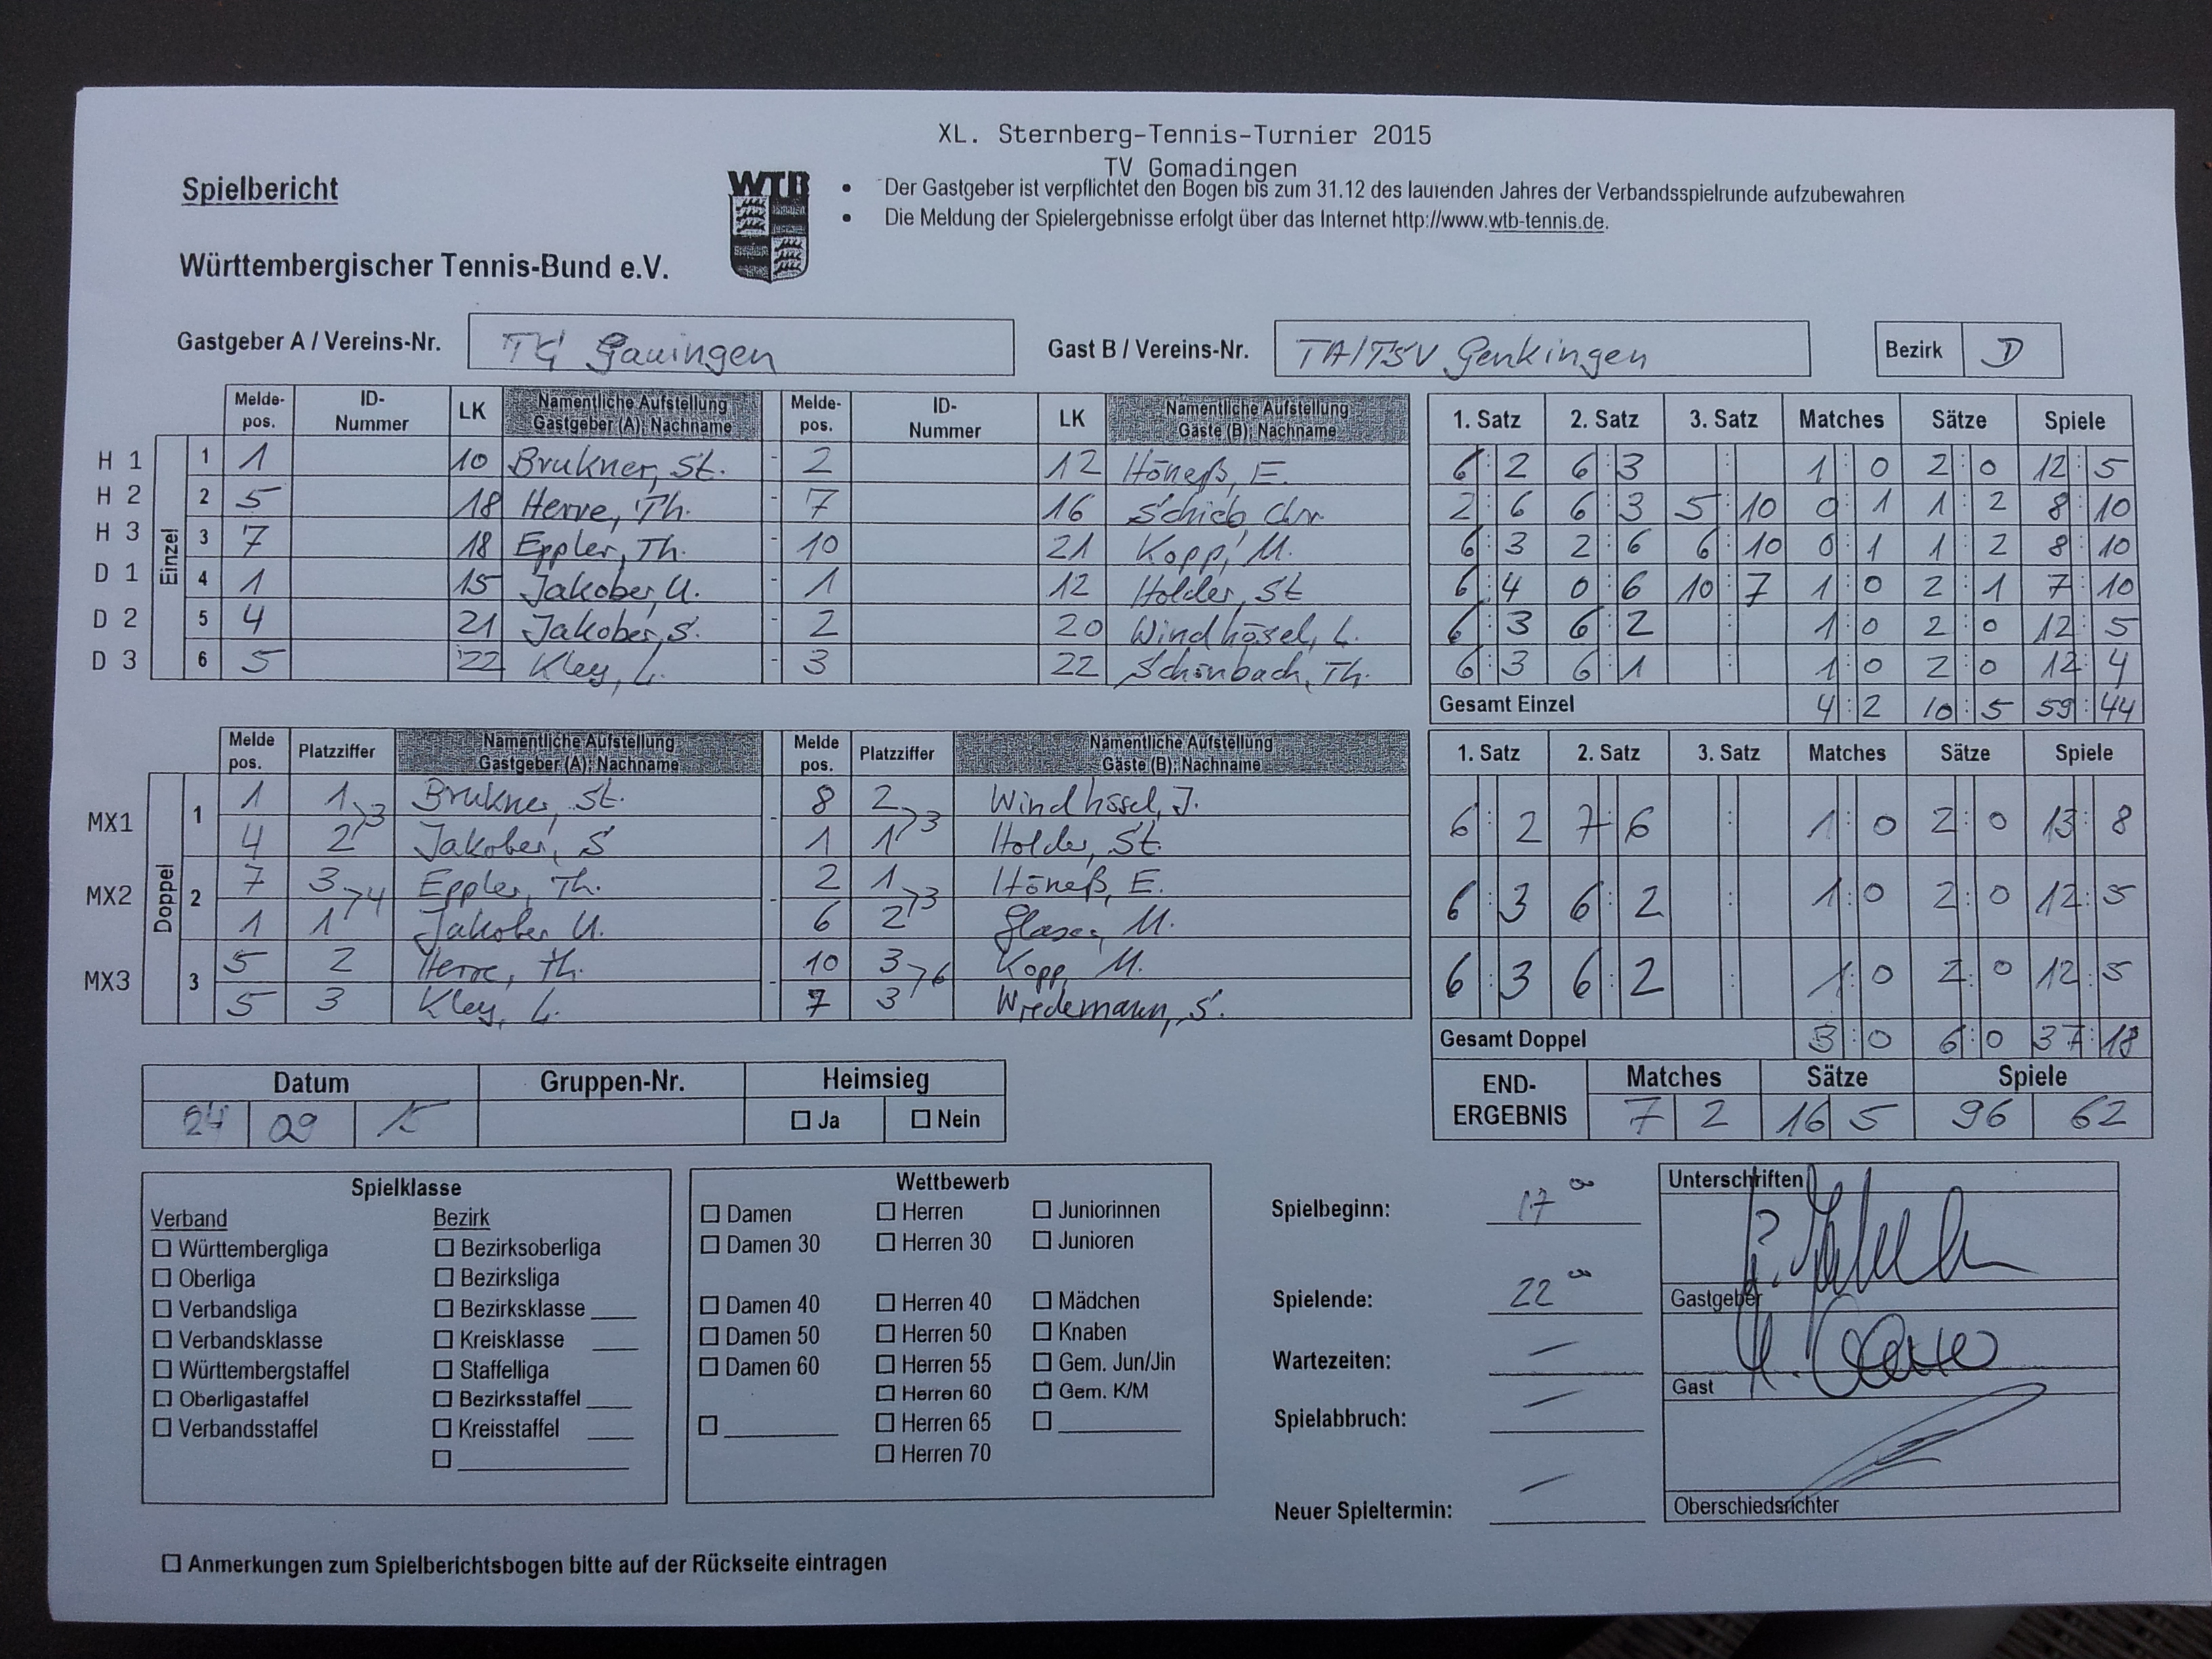 XL. Sternberg-Tennis-Turnier 2015
TV Gomadingen
Spielbericht
WTB
• Der Gastgeber ist verpflichtet den Bogen bis zum 31.12 des laufenden Jahres der Verbandsspielrunde aufzubewahren
• Die Meldung der Spielergebnisse erfolgt über das Internet http://www.wtb-tennis.de.
Württembergischer Tennis-Bund e.V.
Gastgeber A / Vereins-Nr. TG Gauingen Gast B / Vereins-Nr. TA/TSV Genkingen Bezirk D
Melde-pos. ID-Nummer LK Namentliche Aufstellung Gastgeber (A); Nachname Melde-pos. ID-Nummer LK Namentliche Aufstellung Gäste (B); Nachname 1. Satz 2. Satz 3. Satz Matches Sätze Spiele
Einzel
H 1 1 1 10 Brukner, St. - 2 12 Höneß, E. 6:2 6:3 : 1:0 2:0 12:5
H 2 2 5 18 Herre, Th. - 7 16 Schieb Chr. 2:6 6:3 5:10 0:1 1:2 8:10
H 3 3 7 18 Eppler, Th. - 10 21 Kopp, M. 6:3 2:6 6:10 0:1 1:2 8:10
D 1 4 1 15 Jakober, U. - 1 12 Holder, St 6:4 0:6 10:7 1:0 2:1 7:10
D 2 5 4 21 Jakober, S. - 2 20 Windhösel, L. 6:3 6:2 : 1:0 2:0 12:5
D 3 6 5 22 Kley, L. - 3 22 Schönbach, Th. 6:3 6:1 : 1:0 2:0 12:4
Gesamt Einzel 4:2 10:5 59:44
Melde pos. Platzziffer Namentliche Aufstellung Gastgeber (A); Nachname Melde pos. Platzziffer Namentliche Aufstellung Gäste (B); Nachname 1. Satz 2. Satz 3. Satz Matches Sätze Spiele
Doppel
MX1 1 1 1 >3 Brukner, St. - 8 2 >3 Windhösel, J. 6:2 7:6 : 1:0 2:0 13:8
4 2 Jakober, S 1 1 Holder, St.
MX2 2 7 3 >4 Eppler, Th. - 2 1 >3 Höneß, E. 6:3 6:2 : 1:0 2:0 12:5
1 1 Jakober U. 6 2 Glaser, M.
MX3 3 5 2 Herre, Th. - 10 3 >6 Kopp M. 6:3 6:2 : 1:0 2:0 12:5
5 3 Kley, L. 7 3 Wiedemann, S.
Gesamt Doppel 3:0 6:0 37:18
Datum Gruppen-Nr. Heimsieg
24 09 15 ☐ Ja ☐ Nein
END-ERGEBNIS Matches Sätze Spiele
7 2 16 5 96 62
Spielklasse
Verband Bezirk
☐ Württembergliga ☐ Bezirksoberliga
☐ Oberliga ☐ Bezirksliga
☐ Verbandsliga ☐ Bezirksklasse ____
☐ Verbandsklasse ☐ Kreisklasse ____
☐ Württembergstaffel ☐ Staffelliga
☐ Oberligastaffel ☐ Bezirksstaffel ____
☐ Verbandsstaffel ☐ Kreisstaffel ____
☐ ____
Wettbewerb
☐ Damen ☐ Herren ☐ Juniorinnen
☐ Damen 30 ☐ Herren 30 ☐ Junioren
☐ Damen 40 ☐ Herren 40 ☐ Mädchen
☐ Damen 50 ☐ Herren 50 ☐ Knaben
☐ Damen 60 ☐ Herren 55 ☐ Gem. Jun/Jin
☐ Herren 60 ☐ Gem. K/M
☐ ____ ☐ Herren 65 ☐ ____
☐ Herren 70
Spielbeginn: 17 00
Spielende: 22 00
Wartezeiten: —
Spielabbruch: —
Neuer Spieltermin: —
Unterschriften
Gastgeber
Gast
Oberschiedsrichter
☐ Anmerkungen zum Spielberichtsbogen bitte auf der Rückseite eintragen